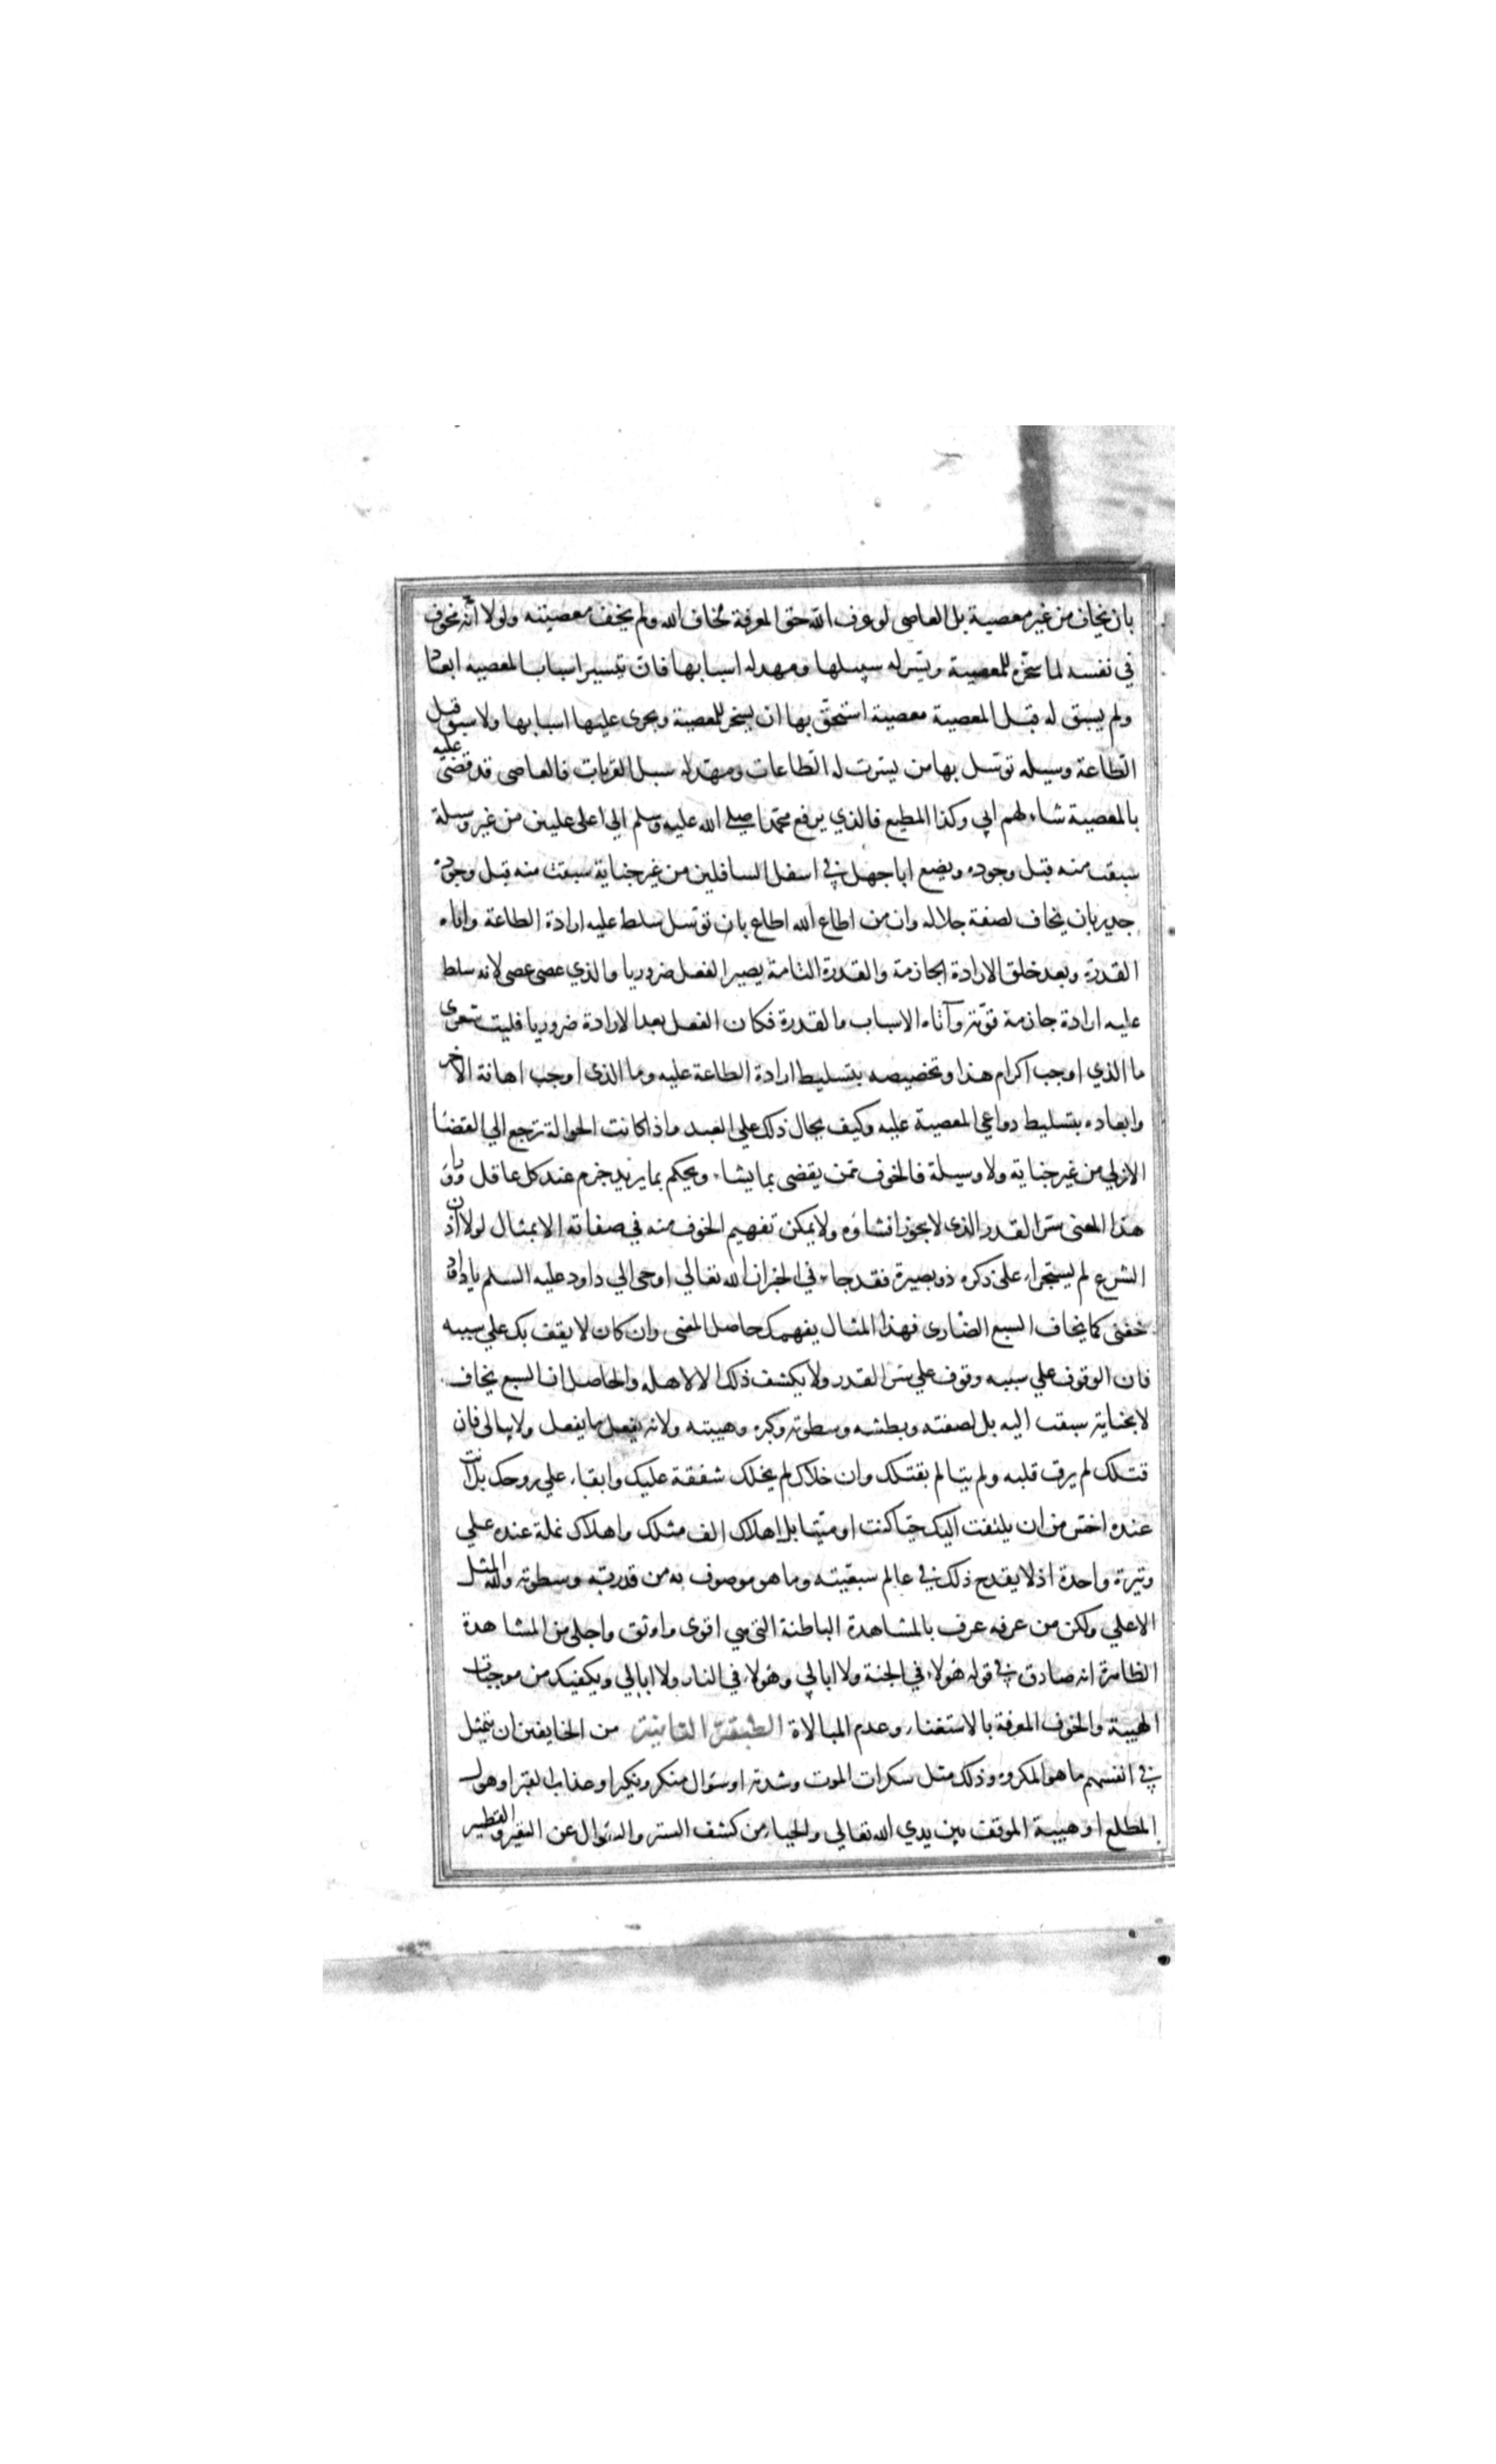 بان يخاف من غير معصية بل العاصي لو عرف الله حق المعرفة لخاف الله ولم يخف معصيته ولولا انه مخوف
في نفسه لما سخره للمعصية ويسر له سبيلها ومهد له اسبابها فان تيسير اسباب المعصيه ابعاد
ولم يسبق له قبل المعصية معصية استحق بها ان يسخر للمعصية ويجرى عليها اسبابها ولا سبق قبل
الطاعة وسيله توسل بها من يسرت له الطاعات ومهد له سبل القربات فالعاصى قد قضى عليه
بالمعصية شاء لهم ابي وكذا المطيع فالذي يرفع محمدا صلى الله عليه وسلم الي اعلى عليين من غير وسيلة
سبقت منه قبل وجوده ويضع ابا جهل في اسفل السافلين من غير جناية سبقت منه قبل وجوده
جدير بان يخاف لصفة جلاله وان من اطاع الله اطاع بان توسل سلط عليه ارادة الطاعة واتاه
القدرة وبعد خلق الارادة الجازمة والقدرة التامة يصير الفعل ضروريا والذي عصى عصى لانه سلط
عليه ارادة جازمة قوية وآتاه الاسباب والقدرة فكان الفعل بعد الارادة ضروريا فليت شعرى
ما الذي اوجب اكرام هذا وتخصيصه بتسليط ارادة الطاعة عليه وما الذى اوجب اهانة الاخر
وابعاده بتسليط دواعي المعصية عليه وكيف يحال ذلك علي العبد واذا كانت الحوالة ترجع الي القضا
الازلي من غير جناية ولا وسيلة فالخوف ممن يقضى بما يشاء ويحكم بما يريد جزم عند كل عاقل وراء
هذا المعنى سر القدر الذى لا يجوز افشاؤه ولا يمكن تفهيم الخوف منه في صفاته الا بمثال لولا اذن
الشرع لم يستجراء على ذكره ذو بصيرة فقد جاء في الخبر ان الله تعالي اوحى الي داود عليه السلم يا داود
خفنى كما يخاف السبع الضارى فهذا المثال يفهمك حاصل المعنى وان كان لا يقف بك علي سببه
فان الوقوف علي سببه وقوف علي سر القدر ولا يكشف ذلك الا لاهله والحاصل ان السبع يخاف
لا بجناية سبقت اليه بل لصفته وبطشه وسطوته وكبره وهيبته ولانه يفعل ما يفعل ولا يبالى فان
قتلك لم يرق قلبه ولم يتالم بقتلك وان خلاك لم يخلك شفقة عليك وابقاء علي روحك بل انت
عنده اخس من ان يلتفت اليك حيا كنت او ميتا بل اهلاك الف مثلك واهلاك نملة عنده علي
وتيرة واحدة اذ لا يقدح ذلك في عالم سبعيته وما هو موصوف به من قدرته وسطوته ولله المثل
الاعلي ولكن من عرفه عرف بالمشاهدة الباطنة التى هي اقوى واوثق واجلى من المشاهدة
الظاهرة انه صادق في قوله هؤلاء في الجنة ولا ابالي وهؤلاء في النار ولا ابالي ويكفيك من موجبات
الهيبة والخوف المعرفة بالاستغناء وعدم المبالاة الطبقة الثانية من الخايفين ان يتمثل
في انفسهم ما هو المكروه وذلك مثل سكرات الموت وشدته او سؤال منكر ونكير او عذاب القبر او هول
المطلع او هيبة الموقف بين يدي الله تعالي والحياء من كشف الستر والسؤال عن النقير والقطمير